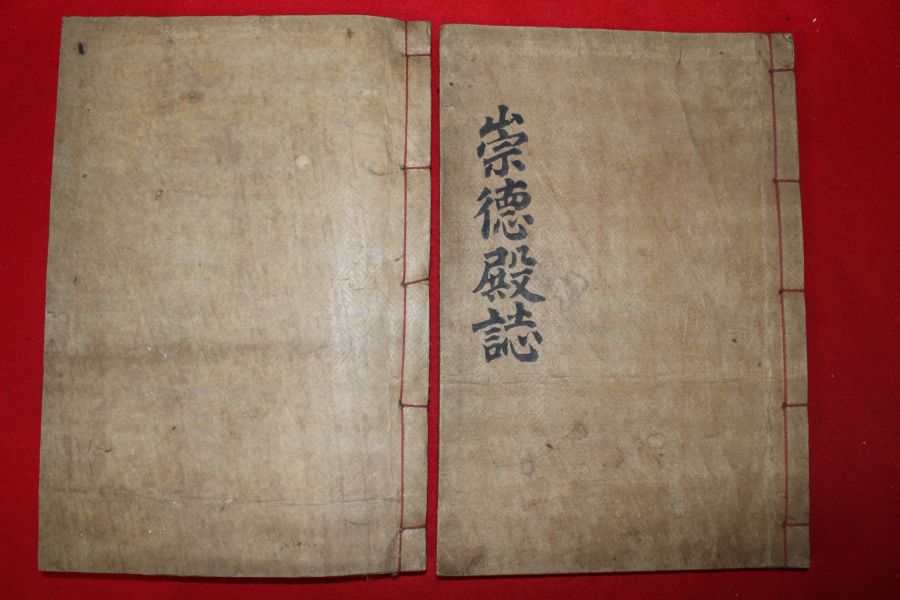 崇德殿誌